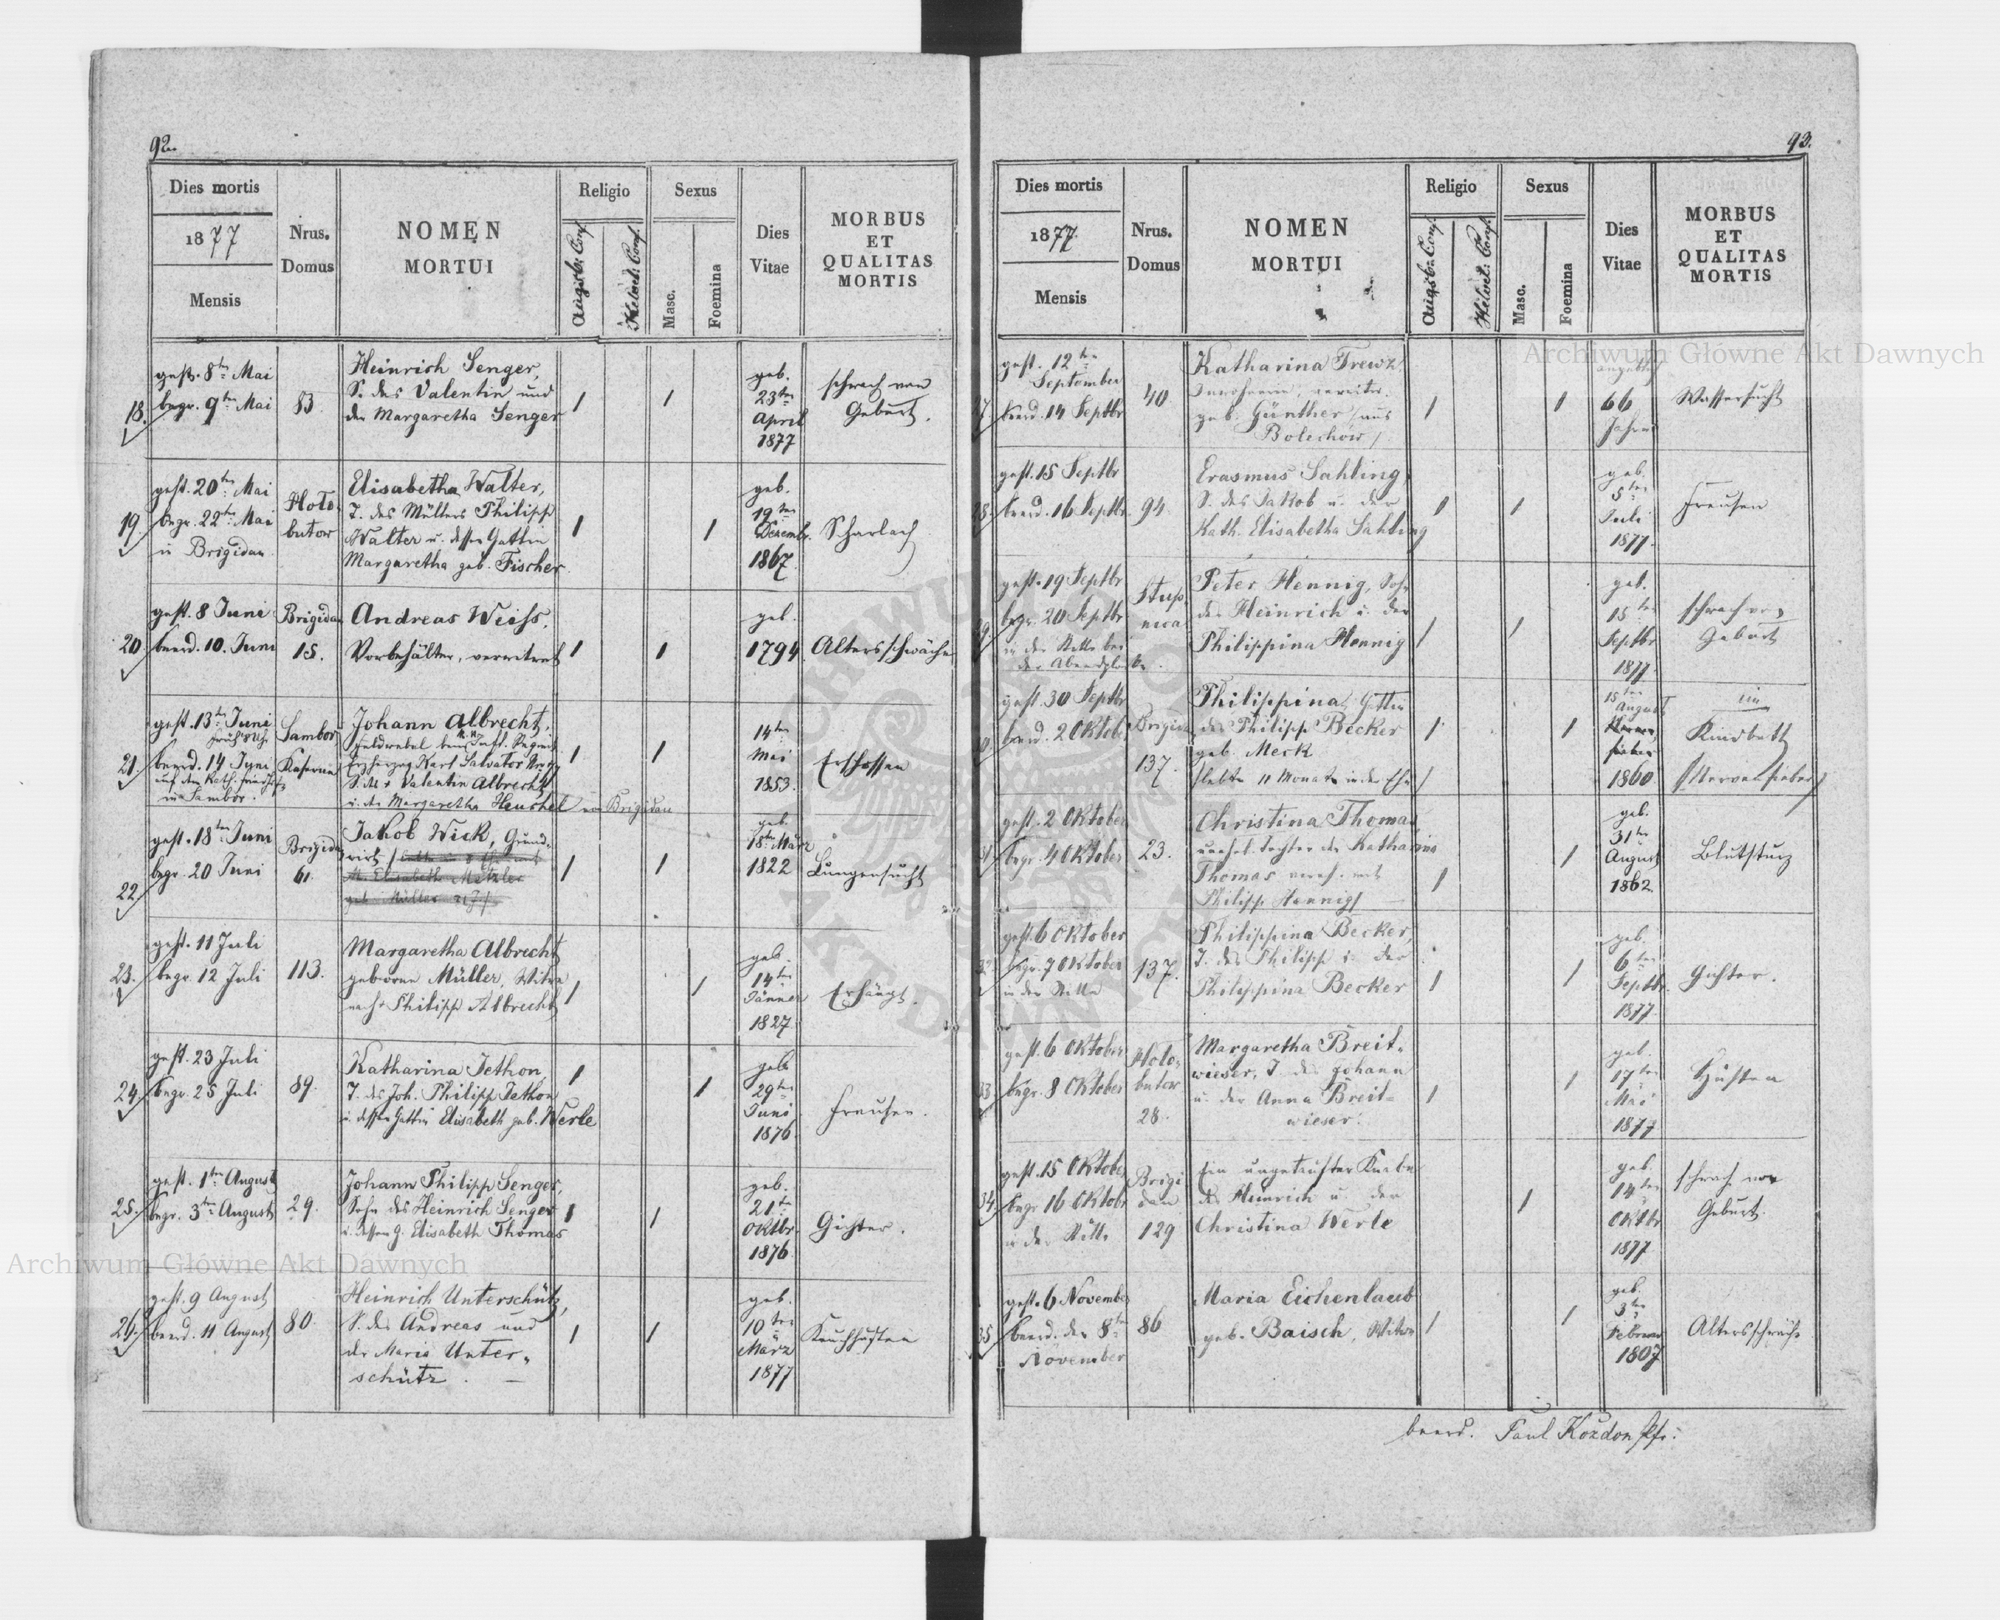 92.
Dies mortis
1877
Mensis
Nrus.
Domus
NOMEN
MORTUI
Religio
Augsb. Conf.
Helvet. Conf.
Sexus
Masc.
Foemina
Dies
Vitae
MORBUS
ET
QUALITAS
MORTIS
18.
gest. 8ten Mai
begr. 9ten Mai
83
Heinrich Senger,
S. des Valentin und
der Margaretha Senger
geb.
23ten
April
1877
schwach von
Geburt.
19.
gest. 20ten Mai
begr. 22ten Mai
in Brigidau
Holo-
butow
Elisabetha Walter,
T. des Müllers Philipp
Walter u. dessen Gattin
Margaretha geb. Fischer
geb.
19ten
Dezembr.
1867
Scharlach
20.
gest. 8 Juni
beerd. 10. Juni
Brigidau
15.
Andreas Weiss,
Vorbehälter, verwitwet
geb.
1794
Altersschwäche
21.
gest. 13ten Juni
früh 8 Uhr
beerd. 14 Juni
auf dem Kath. Friedhofe
in Sambor.
Sambor
Kaserne
Johann Albrecht,
Feldwebel beim Inft. Regmt
Erzherzog Karl Salvator
S. des + Valentin Albrecht
u. der Margaretha Heuchel von Brigidau
14ten
Mai
1853
Erschossen
22
gest. 18ten Juni
begr. 20 Juni
Brigidau
61.
Jakob Wick, Grund-
wirt
M. Elisabetha Metzler
geb. Müller
geb.
18ten März
1822
Lungensucht
23.
gest. 11 Juli
begr. 12 Juli
113.
Margaretha Albrecht
geborene Müller, Witwe
nach + Philipp Albrecht
geb.
14ten
Jänner
1827
Erhängt.
24.
gest. 23 Juli
begr. 25 Juli
89.
Katharina Jethon,
T. des Joh. Philipp Jethon
u. dessen Gattin Elisabeth geb. Werle
geb.
29ten
Juni
1876
Freusen.
25.
gest. 1ten August
begr. 3ten August
29.
Johann Philipp Senger,
Sohn des Heinrich Senger
u. dessen G. Elisabeth Thomas
geb.
21ten
Oktbr.
1876
Gichter.
26.
gest. 9 August
beerd. 11 August
80.
Heinrich Unterschütz,
S. des Andreas und
der Maria Unter-
schütz.
geb.
10ten
März
1877
Keuchhusten
93.
Dies mortis
1877.
Mensis
Nrus.
Domus
NOMEN
MORTUI
Religio
Augsb. Conf.
Helvet. Conf.
Sexus
Masc.
Foemina
Dies
Vitae
MORBUS
ET
QUALITAS
MORTIS
27
gest. 12ten
September
beerd. 14 Septbr
40
Katharina Trewz
geb. Günther / aus
Bolechow /
angeblich
66
Jahre
Wassersucht
28
gest. 15 Septbr
beerd. 16 Septbr.
94.
Erasmus Sahling,
S. des Jakob u. der
Kath. Elisabetha Sahling
geb.
5ten
Juli
1877.
Freusen
29
gest. 19 Septbr
begr. 20 Septbr
in der Stille bei
der Abendglocke.
Stup-
nica
Peter Hennig, Sohn
des Heinrich u. der
Philippina Hennig
geb.
15ten
Septbr
1877.
schwach von
Geburt
30
gest. 30 Septbr
beerd. 2 Oktob.
Brigidau
137.
Philippina, Gattin
des Philipp Becker
geb. Meck
/ lebte 11 Monate in der Ehe /
18ten
August
1860
im
Kindbett
/ Nervenfieber /
31
gest. 2 Oktober
begr. 4 Oktober
23.
Christina Thomas,
unehel. Tochter der Katharina
Thomas vereh. mit
Philipp Hennig /
geb.
31ten
August
1862
Blutsturz
32
gest. 6 Oktober
begr. 7 Oktober
in der Stille
137.
Philippina Becker,
T. des Philipp u. der
Philippina Becker
geb.
6ten
Septbr.
1877
Gichter.
33
gest. 6 Oktober
begr. 8 Oktober
Holo-
butow
28.
Margaretha Breit-
wieser, T. des Johann
u. der Anna Breit-
wieser.
geb.
17ten
Mai
1877
Husten
34
gest. 15 Oktober
begr. 16 Oktobr
in der Stille
Brigi
dau
129
Ein ungetaufter Knabe
des Heinrich u. der
Christina Werle
geb.
14ten
Oktbr
1877
schwach von
Geburt.
35
gest. 6 November
beerd. den 8ten
November
86
Maria Eichenlaub
geb. Baisch, Witwe
geb.
3ten
Februar
1807
Altersschwäche
beerd. Paul Kozdon Pfr.
Archiwum Główne Akt Dawnych
Archiwum Główne Akt Dawnych